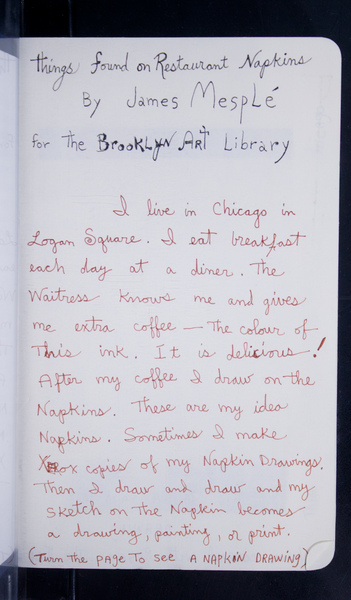 Things found on Restaurant Napkins
By James Mesplé
for The Brooklyn Art Library
I live in Chicago in
Logan Square. I eat breakfast
each day at a diner. The
Waitress knows me and gives
me extra coffee — The colour of
This ink. It is delicious!
After my coffee I draw on the
Napkins. These are my idea
Napkins. Sometimes I make
Xerox copies of my Napkin Drawings.
Then I draw and draw and my
sketch on The Napkin becomes
a drawing, painting, or print.
(Turn the page To see a Napkin Drawing)